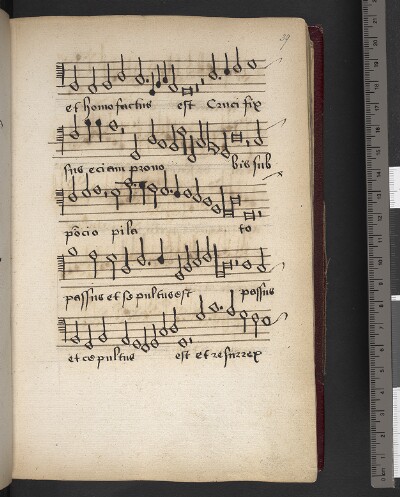 39
et homo factus est Crucifix
sus eciam pro no bis sub
põcio pila to
passus et sepultus est passus
et cepultus est et resurrex